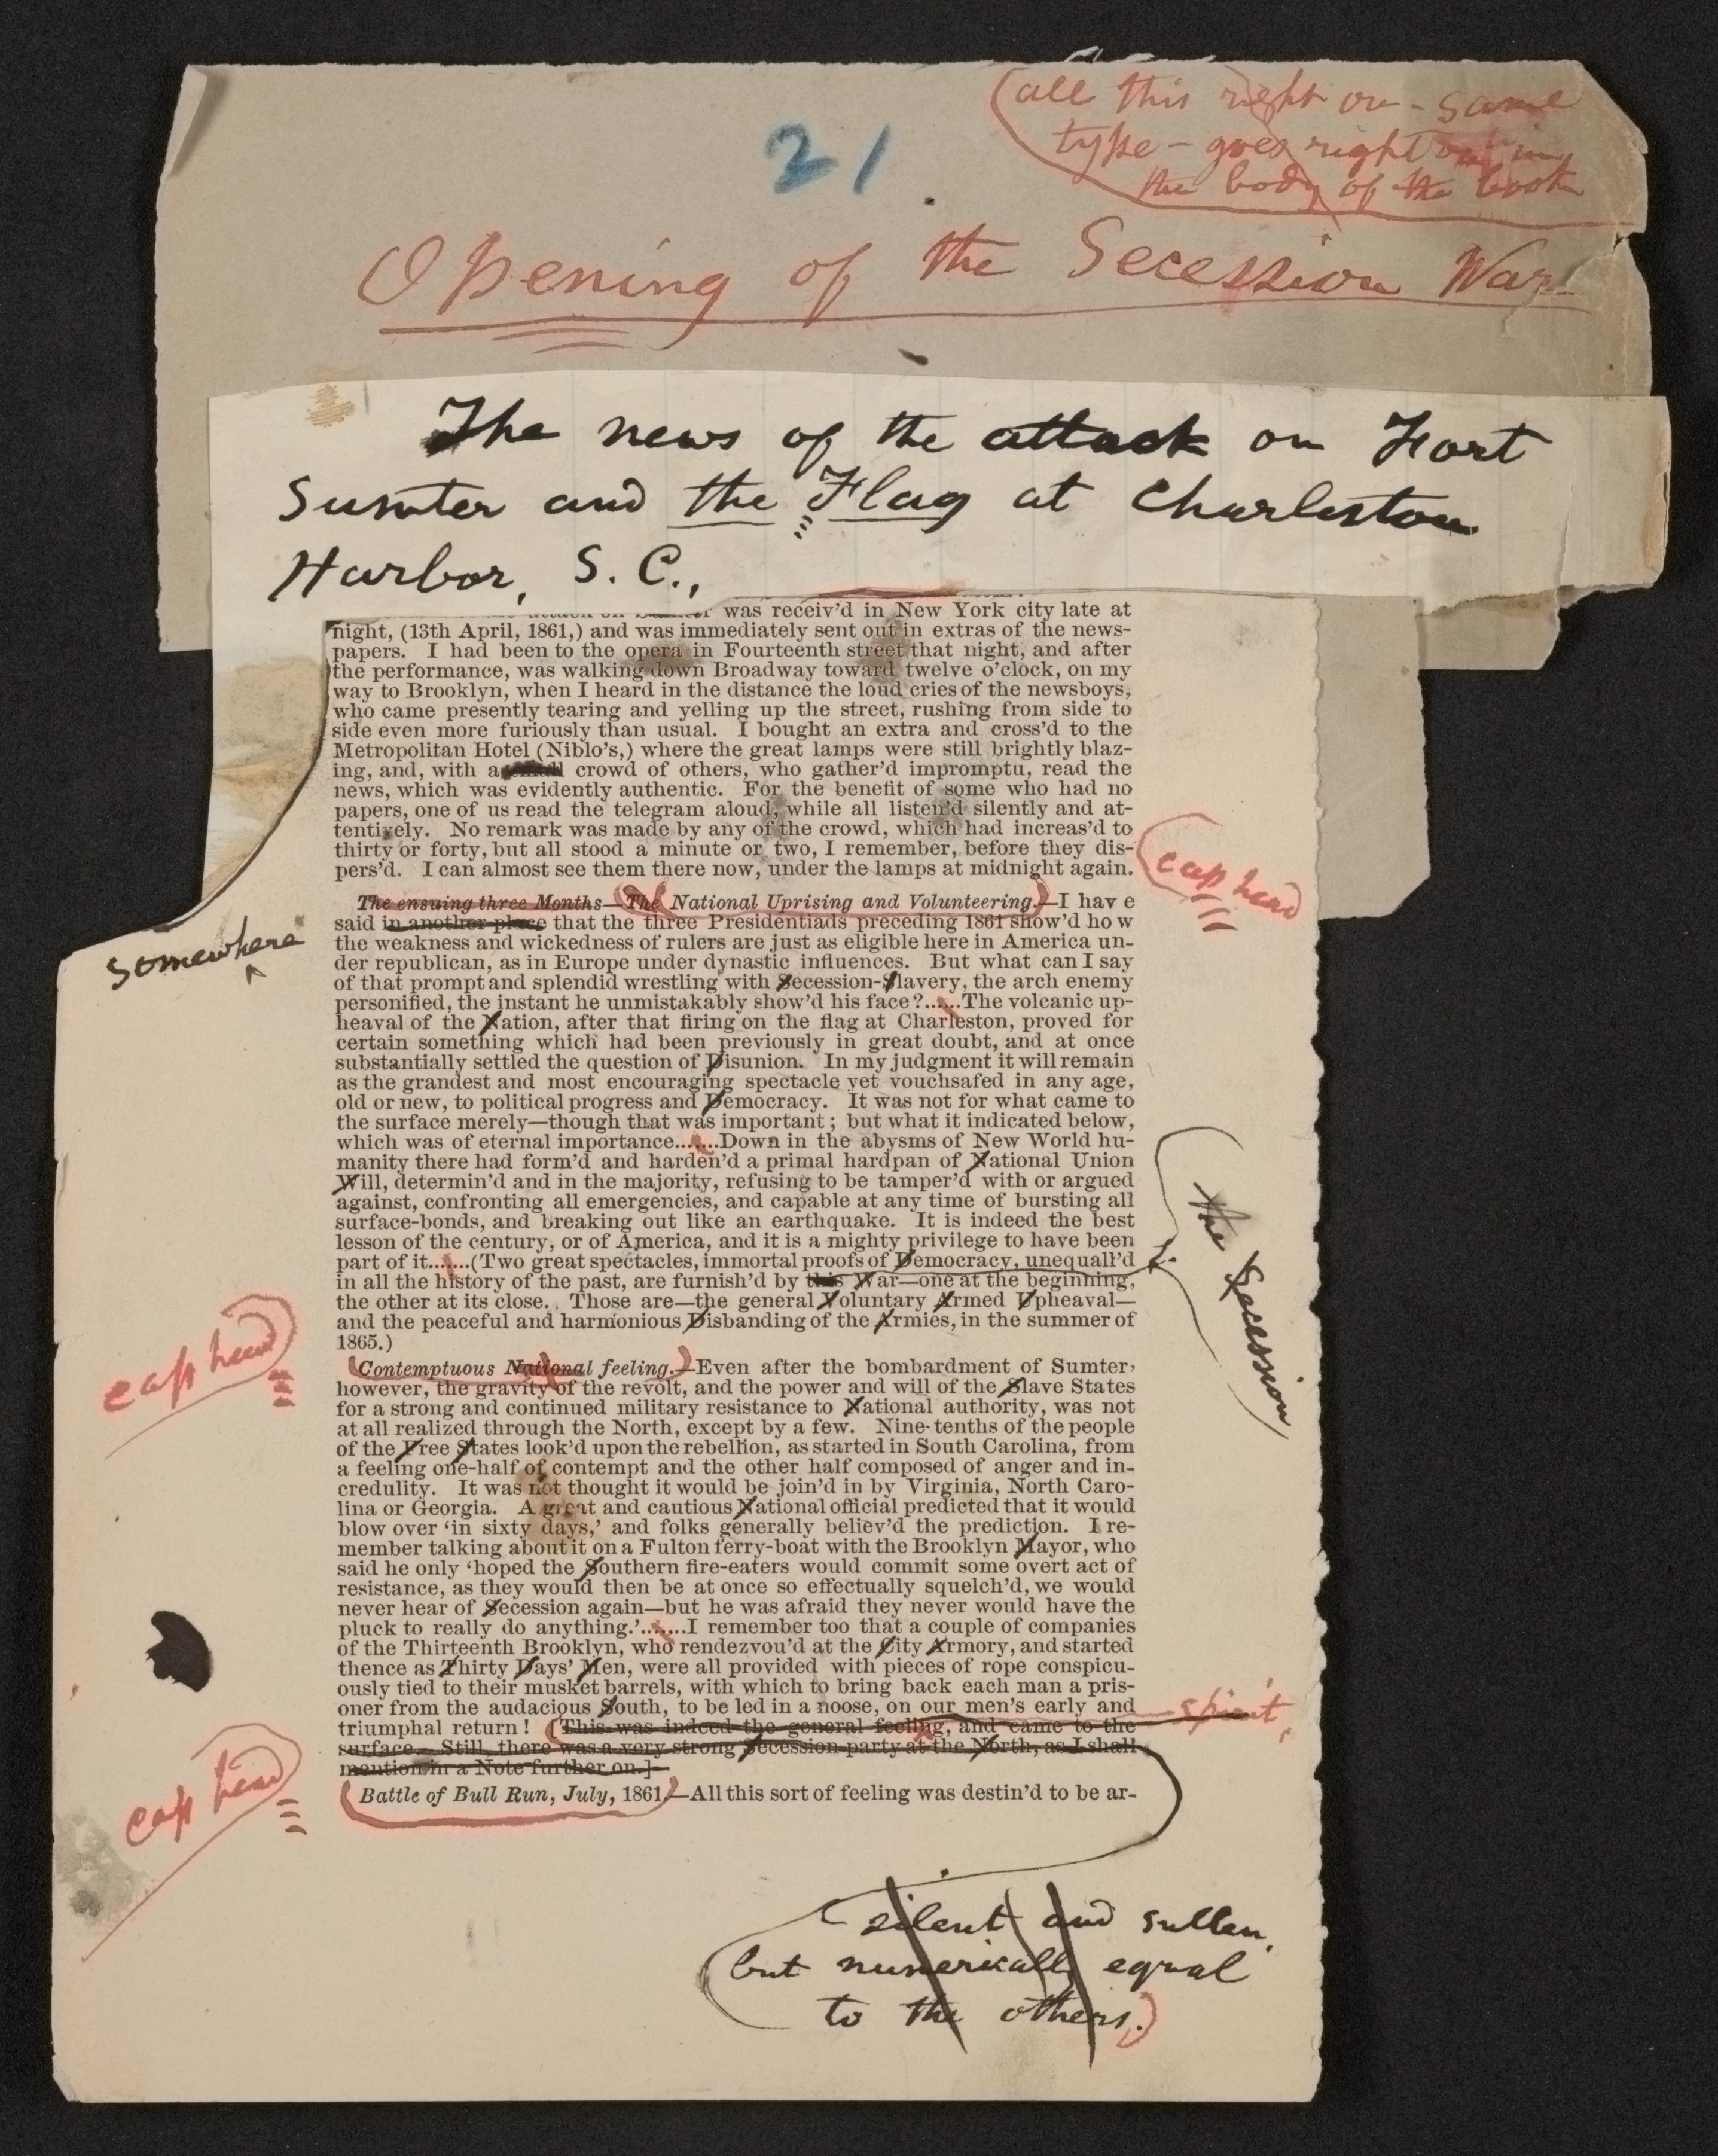 (all this right on - same
type - goes right on in
the body of the book
21
Opening of the Secession War
The news of the attack on Fort
Sumter and the Flag at Charleston
Harbor, S. C.,
was receiv'd in New York city late at
night, (13th April, 1861,) and was immediately sent out in extras of the news-
papers. I had been to the opera in Fourteenth street that night, and after
the performance, was walking down Broadway toward twelve o'clock, on my
way to Brooklyn, when I heard in the distance the loud cries of the newsboys,
who came presently tearing and yelling up the street, rushing from side to
side even more furiously than usual. I bought an extra and cross'd to the
Metropolitan Hotel (Niblo's,) where the great lamps were still brightly blaz-
ing, and, with a small crowd of others, who gather'd impromptu, read the
news, which was evidently authentic. For the benefit of some who had no
papers, one of us read the telegram aloud, while all listen'd silently and at-
tentively. No remark was made by any of the crowd, which had increas'd to
thirty or forty, but all stood a minute or two, I remember, before they dis-
pers'd. I can almost see them there now, under the lamps at midnight again.
cap head
The ensuing three Months—The National Uprising and Volunteering.—I hav e
said in another place that the three Presidentiads preceding 1861 show'd ho w
somewhere
the weakness and wickedness of rulers are just as eligible here in America un-
der republican, as in Europe under dynastic influences. But what can I say
of that prompt and splendid wrestling with Secession-Slavery, the arch enemy
personified, the instant he unmistakably show'd his face?......The volcanic up-
heaval of the Nation, after that firing on the flag at Charleston, proved for
certain something which had been previously in great doubt, and at once
substantially settled the question of Disunion. In my judgment it will remain
as the grandest and most encouraging spectacle yet vouchsafed in any age,
old or new, to political progress and Democracy. It was not for what came to
the surface merely—though that was important; but what it indicated below,
which was of eternal importance.......Down in the abysms of New World hu-
manity there had form'd and harden'd a primal hardpan of National Union
Will, determin'd and in the majority, refusing to be tamper'd with or argued
against, confronting all emergencies, and capable at any time of bursting all
surface-bonds, and breaking out like an earthquake. It is indeed the best
lesson of the century, or of America, and it is a mighty privilege to have been
part of it.......(Two great spectacles, immortal proofs of Democracy, unequall'd
in all the history of the past, are furnish'd by this War—one at the beginning,
the Secession
the other at its close. Those are—the general Voluntary Armed Upheaval—
and the peaceful and harmonious Disbanding of the Armies, in the summer of
1865.)
cap head
Contemptuous National feeling.—Even after the bombardment of Sumter,
however, the gravity of the revolt, and the power and will of the Slave States
for a strong and continued military resistance to National authority, was not
at all realized through the North, except by a few. Nine-tenths of the people
of the Free States look'd upon the rebellion, as started in South Carolina, from
a feeling one-half of contempt and the other half composed of anger and in-
credulity. It was not thought it would be join'd in by Virginia, North Caro-
lina or Georgia. A great and cautious National official predicted that it would
blow over 'in sixty days,' and folks generally believ'd the prediction. I re-
member talking about it on a Fulton ferry-boat with the Brooklyn Mayor, who
said he only 'hoped the Southern fire-eaters would commit some overt act of
resistance, as they would then be at once so effectually squelch'd, we would
never hear of Secession again—but he was afraid they never would have the
pluck to really do anything.'.......I remember too that a couple of companies
of the Thirteenth Brooklyn, who rendezvou'd at the City Armory, and started
thence as Thirty Days' Men, were all provided with pieces of rope conspicu-
ously tied to their musket barrels, with which to bring back each man a pris-
oner from the audacious South, to be led in a noose, on our men's early and
triumphal return! [This was indeed the general feeling, and came to the
spirit,
surface. Still, there was a very strong Secession party at the North, as I shall
mention in a Note further on.]
cap head
Battle of Bull Run, July, 1861.—All this sort of feeling was destin'd to be ar-
silent and sullen,
but numerically equal
to the others.)